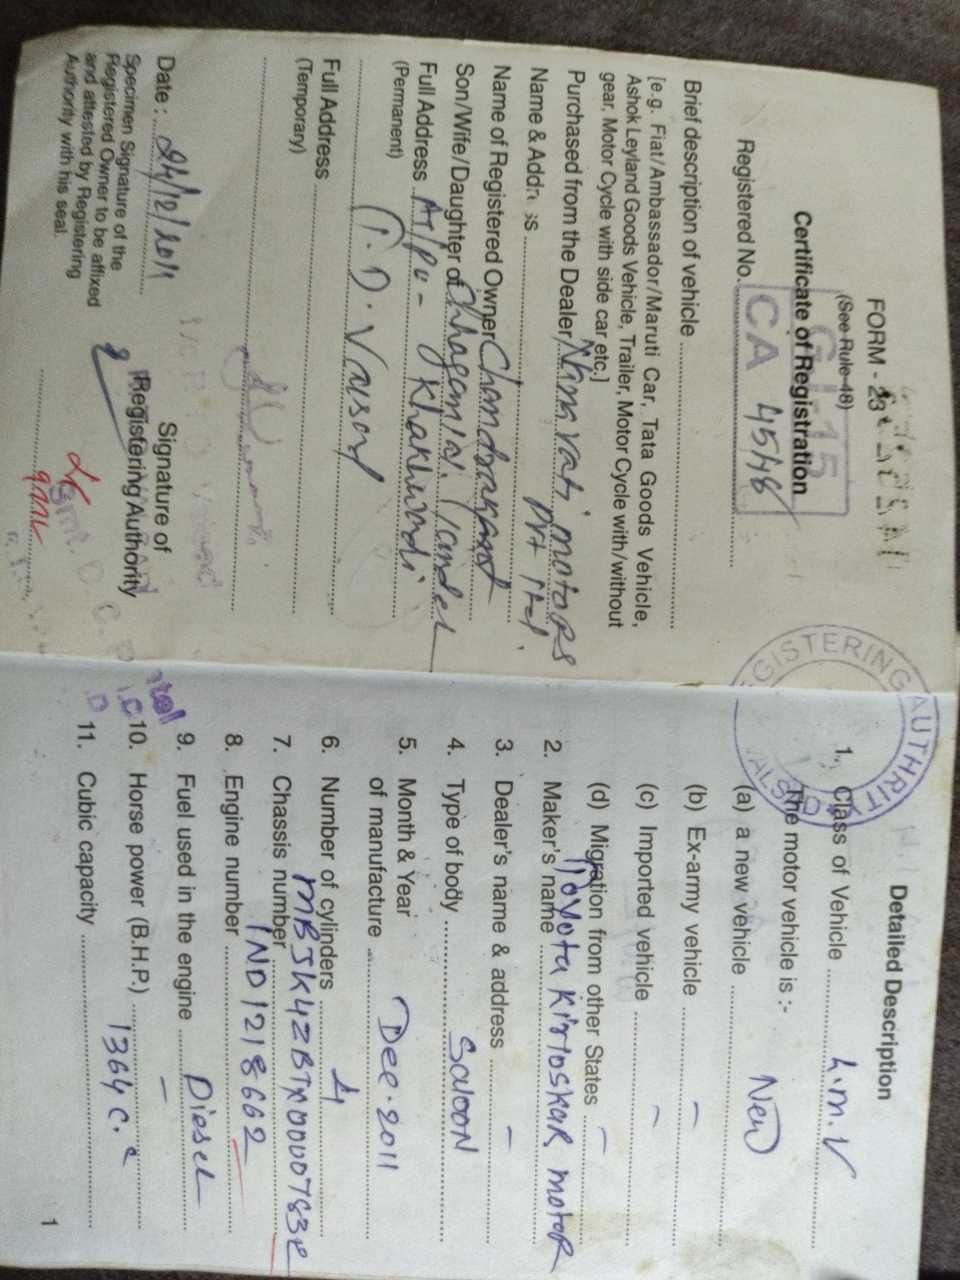 FORM - 23
(See Rule-48)
Certificate of Registration
GJ 15
Registered No. CA 4548
Brief description of vehicle
[e.g. Fiat/Ambassador/Maruti Car, Tata Goods Vehicle,
Ashok Leyland Goods Vehicle, Trailer, Motor Cycle with/without
gear, Motor Cycle with side car etc.]
Purchased from the Dealer, Nanavati motors
Name & Address Pvt Ltd.
Name of Registered Owner Chandrakant
Son/Wife/Daughter of Chhaganlal
Full Address At/po - Khakhwadi
(Permanent)
Full Address
(Temporary)
Date : 24/12/2011
Specimen Signature of the
Registered Owner to be affixed
and attested by Registering
Authority with his seal.
Signature of
Registering Authority
REGISTERING AUTHRITY
VALSAD
Detailed Description
1. Class of Vehicle L.m.V
The motor vehicle is :-
(a) a new vehicle New
(b) Ex-army vehicle –
(c) Imported vehicle –
(d) Migration from other States –
2. Maker's name Toyota Kirloskar motor
3. Dealer's name & address –
4. Type of body Saloon
5. Month & Year
of manufacture Dec. 2011
6. Number of cylinders 4
7. Chassis number
8. Engine number 1ND1218662
9. Fuel used in the engine Diesel
10. Horse power (B.H.P.) –
11. Cubic capacity 1364 C.
1